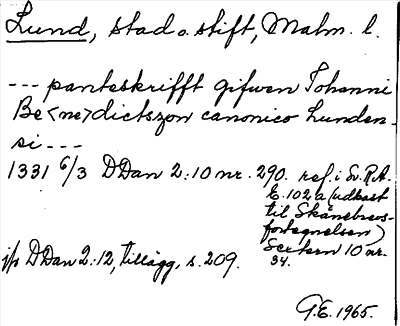 Lund, stad o. stift, Malm. l.
--- panteskrifft gifwen Johanni
Be<ne>dictszøn canonico Lunden-
si ---
1331 6/3 DDan 2:10 nr. 290. ref. i Sv. R.A.
E. 102 a (udkast
til Skånebrevs-
fortegnelsen)
Sextern 10 nr.
34.
jfr DDan 2:12, tillägg, s. 209.
G.E. 1965.